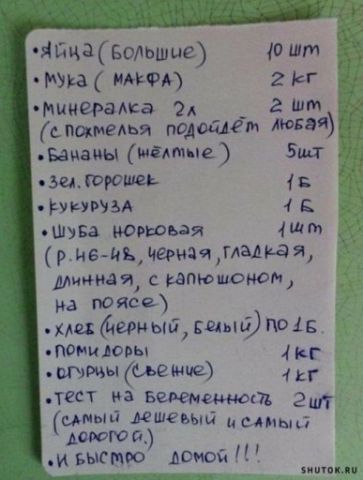 • Яйца (большие) 10 шт
• Мука (МАКФА) 2 кг
• Минералка 2л 2 шт
(с похмелья подойдёт любая)
• Бананы (жёлтые) 5шт
• Зел. горошек 1 Б
• Кукуруза 1 Б
• Шуба норковая 1шт
(р.46-48, чёрная, гладкая,
длинная, с капюшоном,
на поясе)
• Хлеб (чёрный, белый) по 1 Б.
• Помидоры 1 кг
• Огурцы (свежие) 1 кг
• Тест на беременность 2 шт
(самый дешевый и самый
дорогой.)
• И быстро домой!!!
SHUTOK.RU